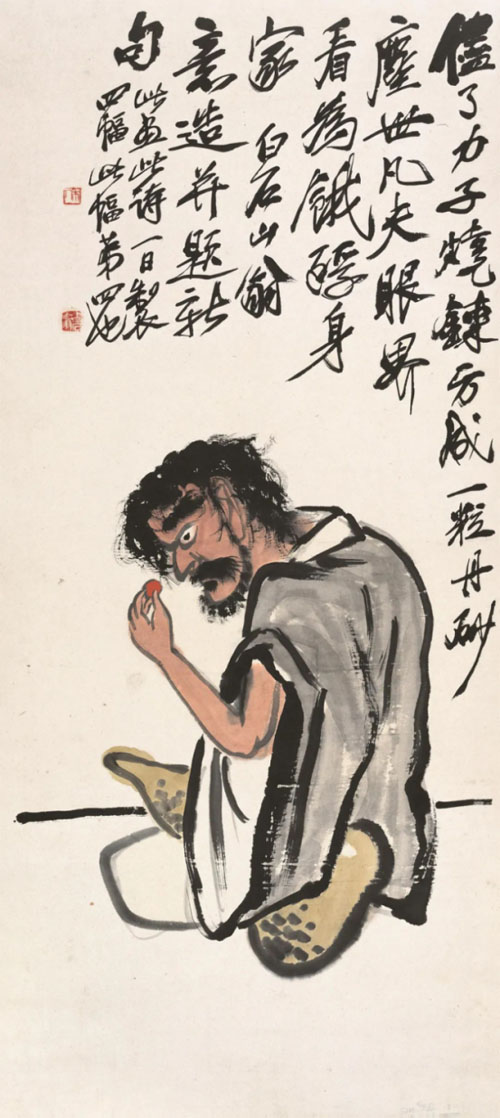 儘了力子燒鍊方成一粒丹砂
塵世凡夫眼界
看為餓殍身
家 白石山翁
意造并題新
句 此畫此詩一日製
四幅此幅第四也